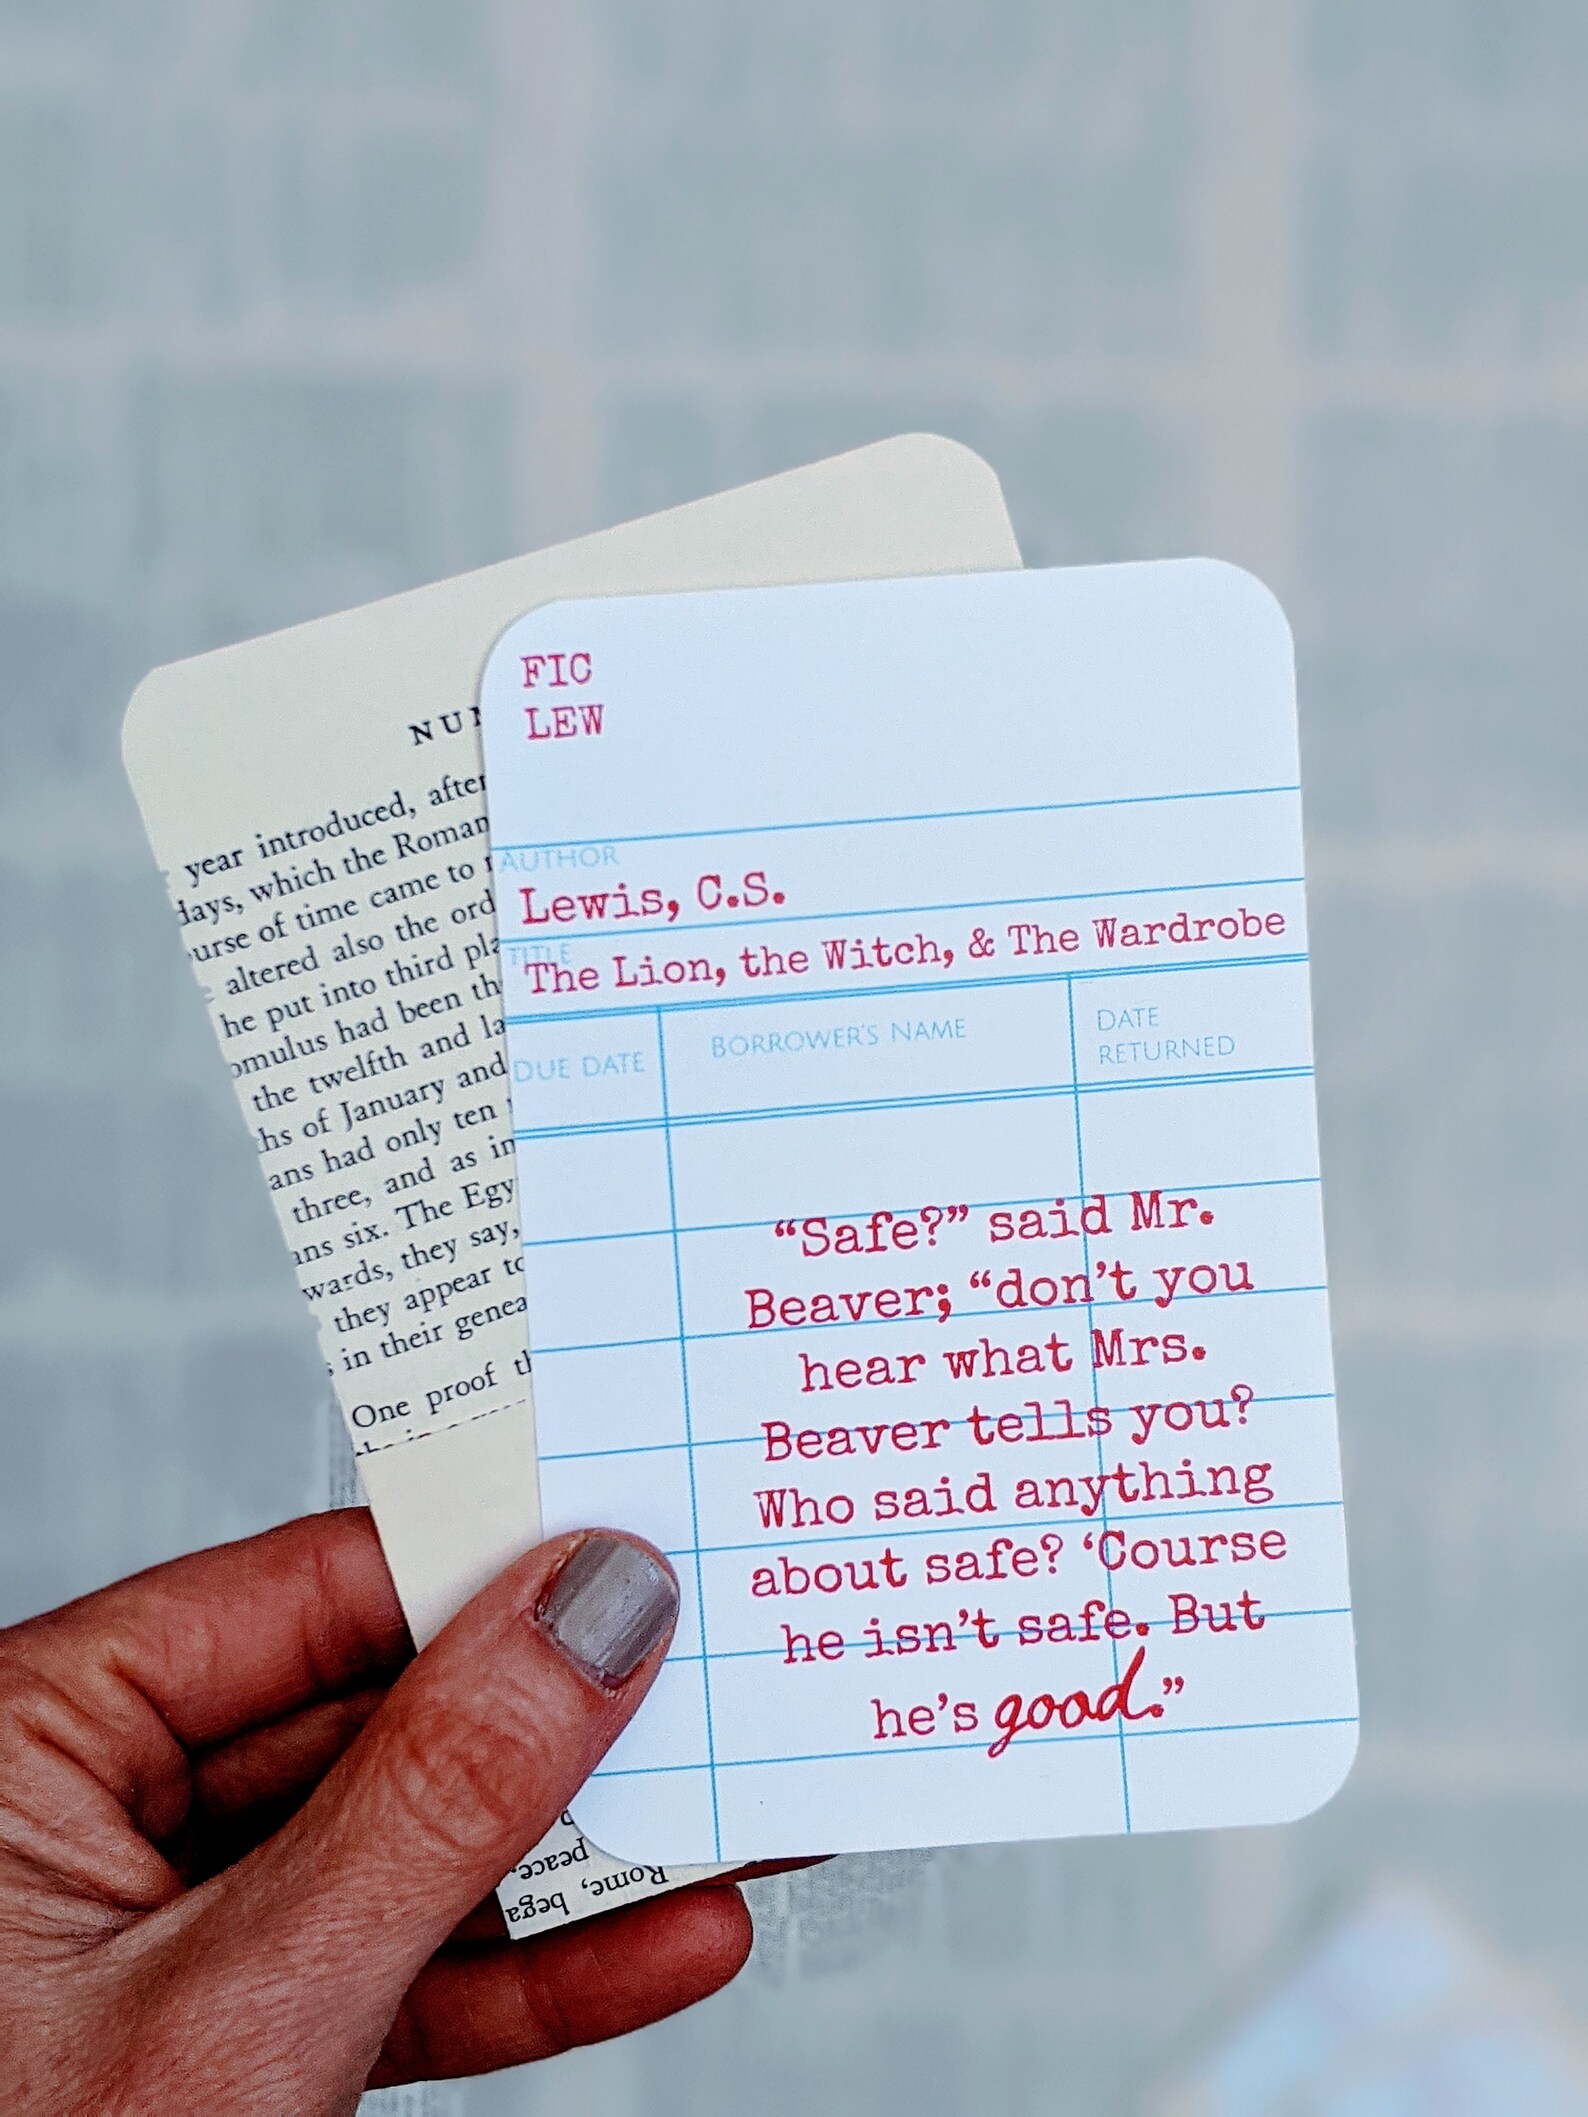 NU
year introduced, after
days, which the Roman
urse of time came to
altered also the ord
he put into third pla
omulus had been th
the twelfth and la
hs of January and
ans had only ten
three, and as in
ans six. The Egy
wards, they say,
they appear to
in their genea
One proof th
peace,
Rome, bega
FIC
LEW
AUTHOR
Lewis, C.S.
TITLE
The Lion, the Witch, & The Wardrobe
DUE DATE
BORROWER'S NAME
DATE
RETURNED
“Safe?” said Mr.
Beaver; “don’t you
hear what Mrs.
Beaver tells you?
Who said anything
about safe? ‘Course
he isn’t safe. But
he’s good.”